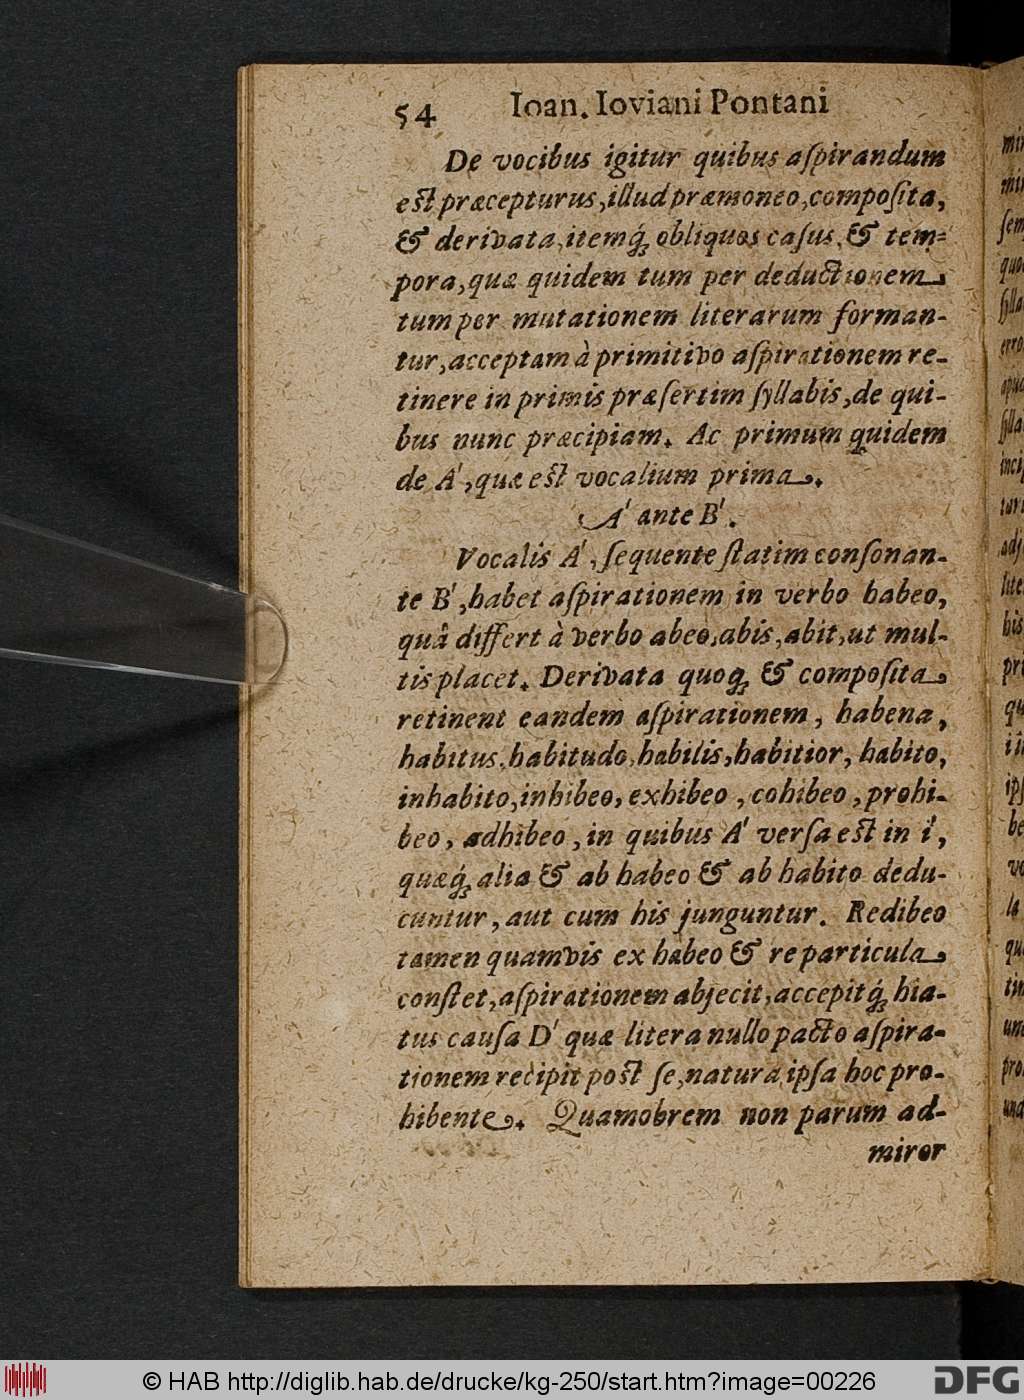 54 Ioan. Ioviani Pontani
De vocibus igitur quibus aſpirandum
eſt præcepturus, illud præmoneo, compoſita,
& derivata, itemq́; obliquos caſus, & tem-
pora, quæ quidem tum per deductionem,
tum per mutationem literarum forman-
tur, acceptam à primitivo aſpirationem re-
tinere in primis præſertim ſyllabis, de qui-
bus nunc præcipiam. Ac primum quidem
de A', quæ eſt vocalium prima.
A' ante B'.
Vocalis A', ſequente ſtatim conſonan-
te B', habet aſpirationem in verbo habeo,
quâ differt à verbo abeo, abis, abit, ut mul-
tis placet. Derivata quoq; & compoſita
retinent eandem aſpirationem, habena,
habitus, habitudo, habilis, habitior, habito,
inhabito, inhibeo, exhibeo, cohibeo, prohi-
beo, adhibeo, in quibus A' verſa eſt in i',
quæq́; alia & ab habeo & ab habito dedu-
cuntur, aut cum his junguntur. Redibeo
tamen quamvis ex habeo & re particula
conſtet, aſpirationem abjecit, accepitq́; hia-
tus cauſa D' quæ litera nullo pacto aſpira-
tionem recipit poſt ſe, natura ipſa hoc pro-
hibente. Quamobrem non parum ad-
miror
© HAB http://diglib.hab.de/drucke/kg-250/start.htm?image=00226
DFG